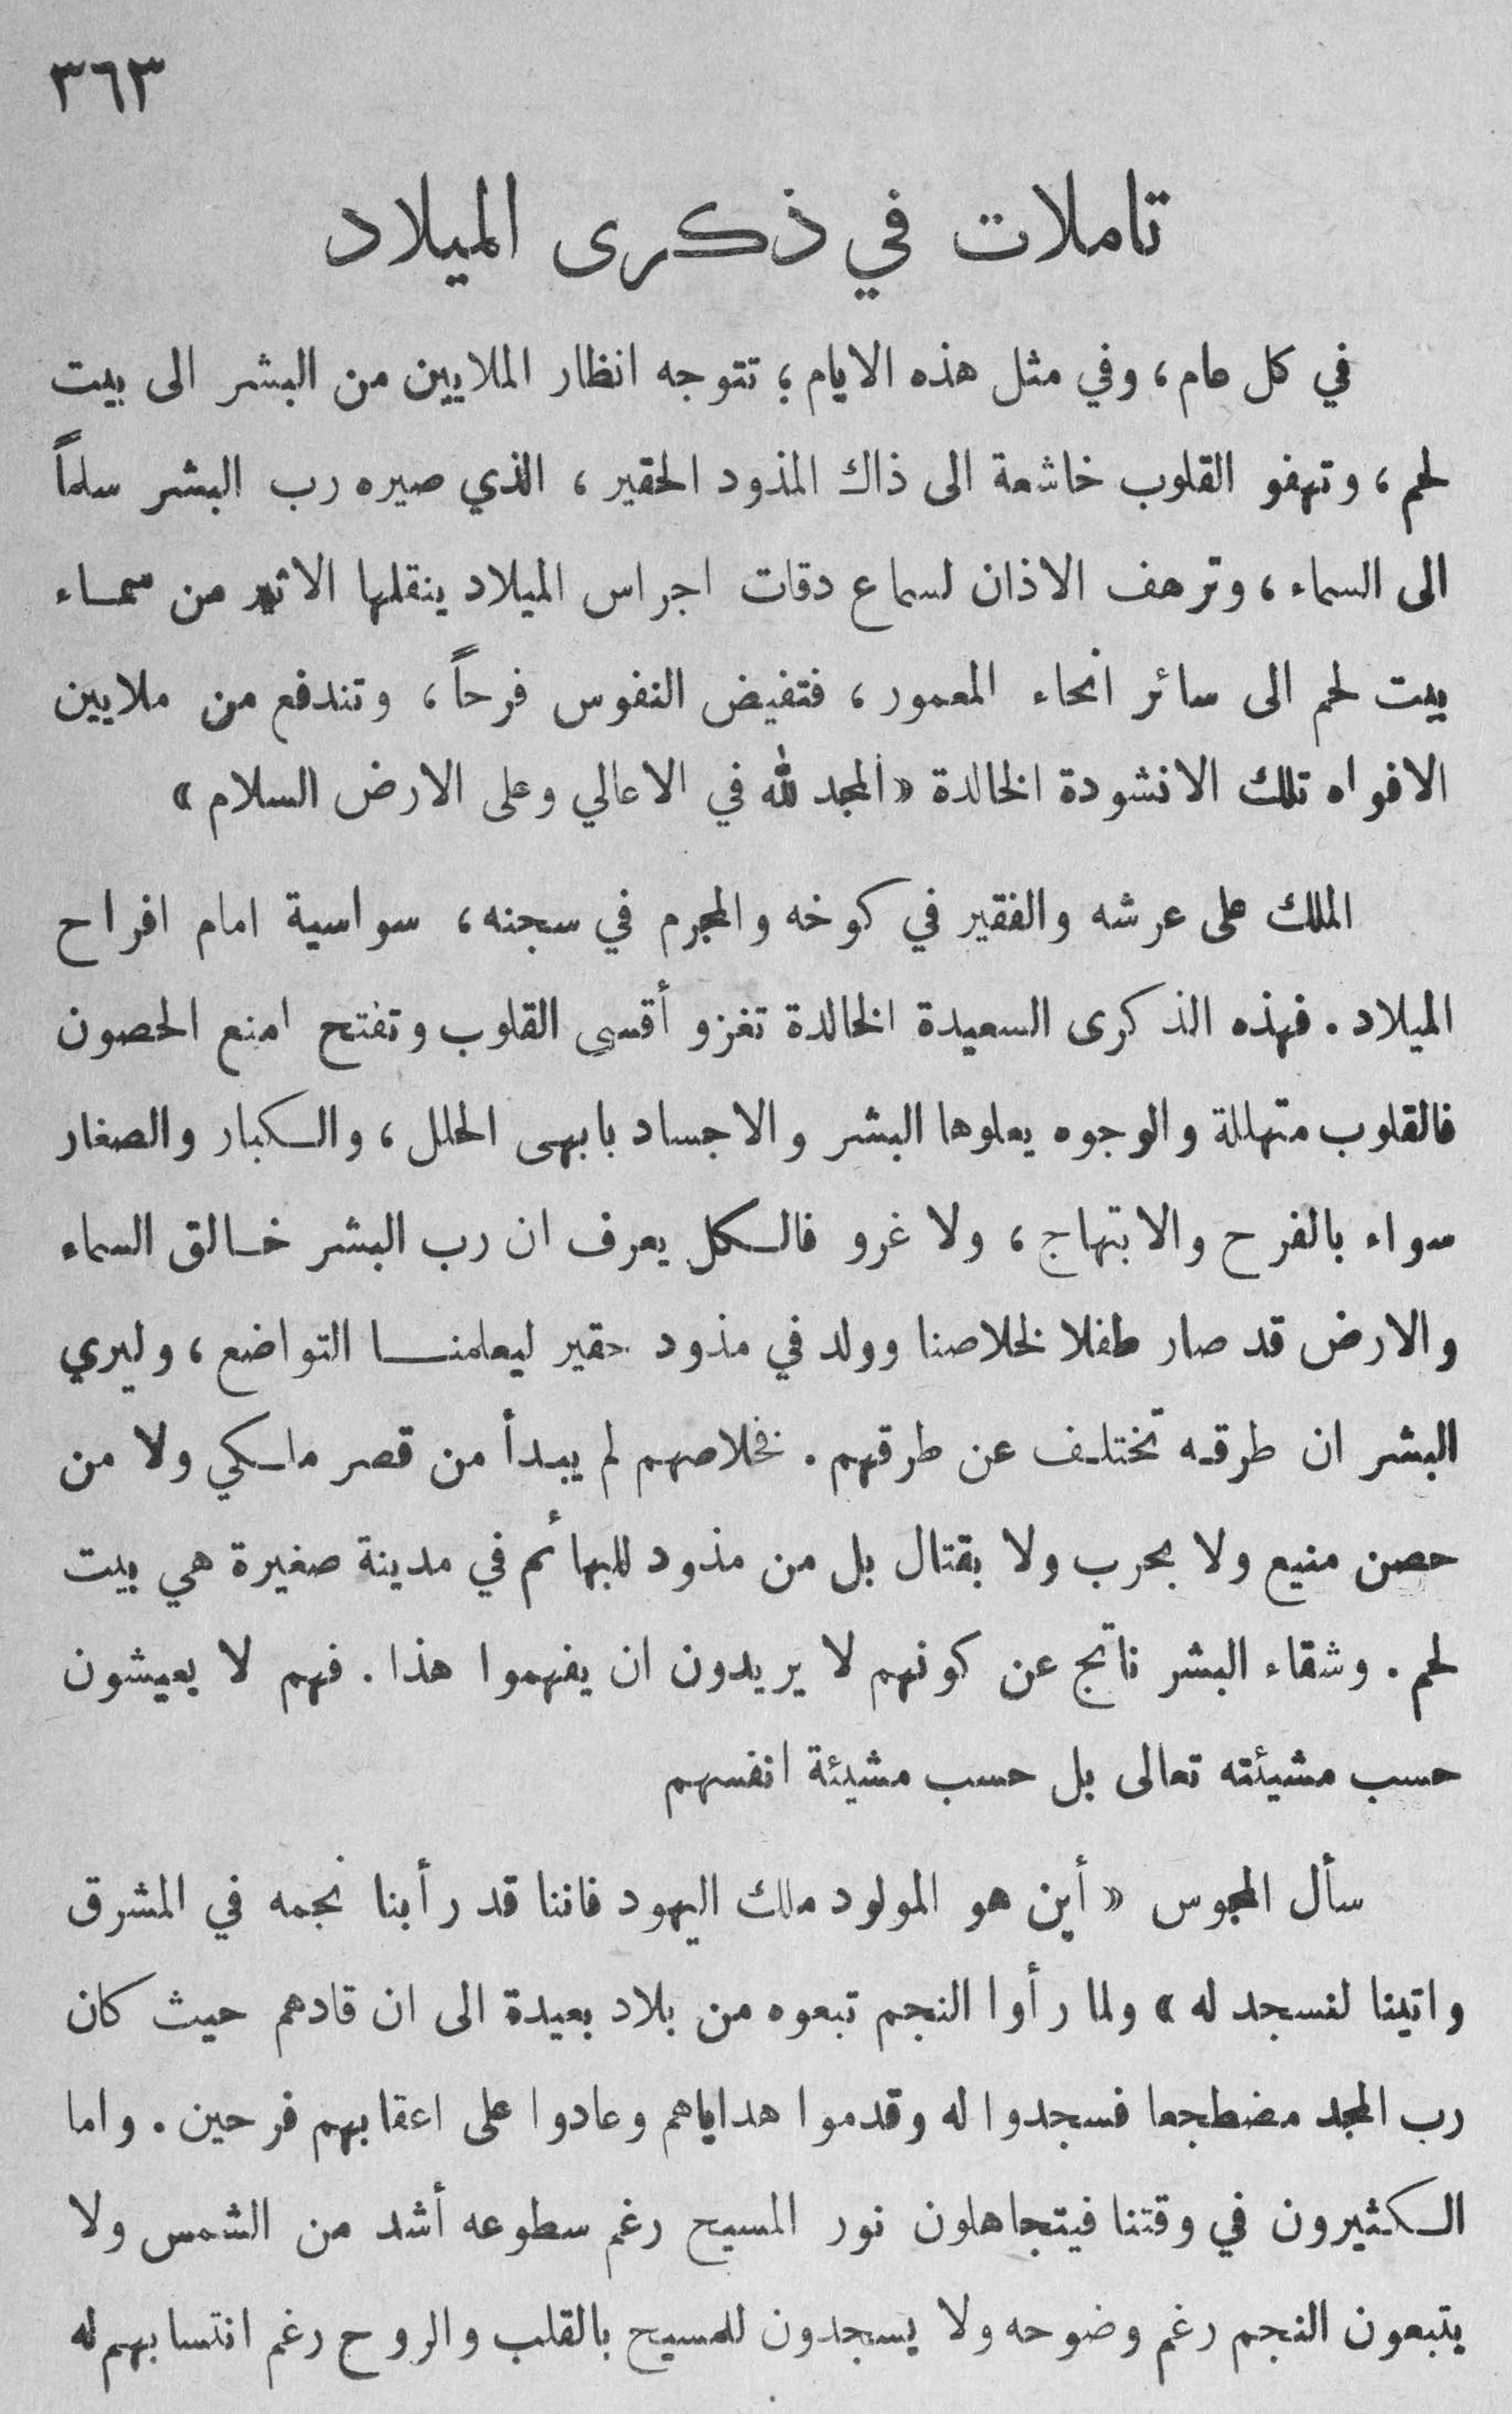 ٣٦٣
تاملات في ذكرى الميلاد
في كل عام، وفي مثل هذه الايام؛ تتوجه انظار الملايين من البشر الى بيت
لحم، وتهفو القلوب خاشعة الى ذاك المذود الحقير، الذي صيره رب البشر سلماً
الى السماء، وترهف الاذان لسماع دقات اجراس الميلاد ينقلها الاثير من سماء
بيت لحم الى سائر انحاء المعمور، فتفيض النفوس فرحاً، وتندفع من ملايين
الافواه تلك الانشودة الخالدة «المجد لله في الاعالي وعلى الارض السلام»
الملك على عرشه والفقير في كوخه والمجرم في سجنه، سواسية امام افراح
الميلاد. فهذه الذكرى السعيدة الخالدة تغزو أقسى القلوب وتفتح امنع الحصون
فالقلوب متهللة والوجوه يعلوها البشر والاجساد بابهى الحلل، والكبار والصغار
سواء بالفرح والابتهاج، ولا غرو فالكل يعرف ان رب البشر خالق السماء
والارض قد صار طفلا لخلاصنا وولد في مذود حقير ليعلمنا التواضع، وليري
البشر ان طرقه تختلف عن طرقهم. فخلاصهم لم يبدأ من قصر ملكي ولا من
حصن منيع ولا بحرب ولا بقتال بل من مذود للبهائم في مدينة صغيرة هي بيت
لحم. وشقاء البشر ناتج عن كونهم لا يريدون ان يفهموا هذا. فهم لا يعيشون
حسب مشيئته تعالى بل حسب مشيئة انفسهم
سأل المجوس «أين هو المولود ملك اليهود فاننا قد رأينا نجمه في المشرق
واتينا لنسجد له» ولما رأوا النجم تبعوه من بلاد بعيدة الى ان قادهم حيث كان
رب المجد مضطجعا فسجدوا له وقدموا هداياهم وعادوا على اعقابهم فرحين. واما
الكثيرون في وقتنا فيتجاهلون نور المسيح رغم سطوعه أشد من الشمس ولا
يتبعون النجم رغم وضوحه ولا يسجدون للمسيح بالقلب والروح رغم انتسابهم له